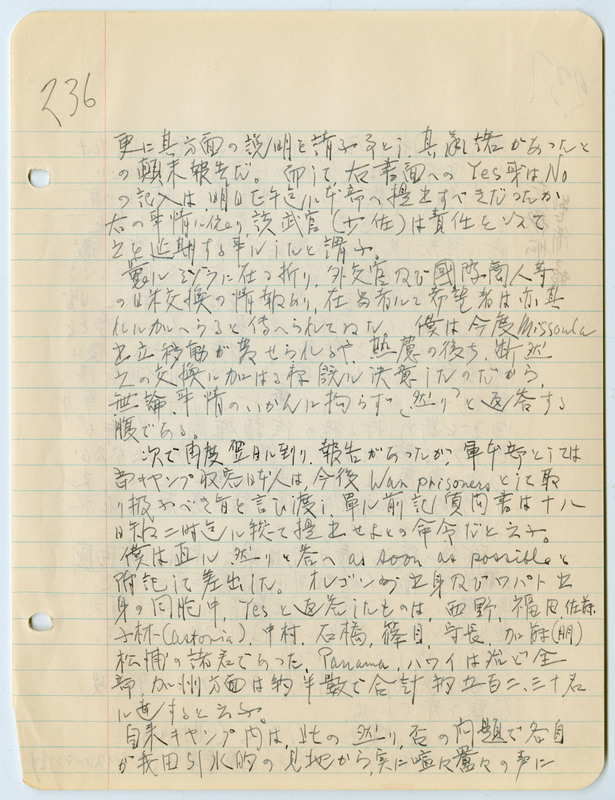 236
更に其方面の説明を請求すると、其承諾があったと
の顛末報告だ。而して右書面への Yes 又は No
の記入は、明日正午迄に本部へ提出すべきだったが
右の事情に依り、該武官(少佐)は責任を以て
之を延期する事にしたと謂ふ。
曩にミゾラに在る折り、外交官及び國際商人等
の日米交換の情報あり、在留者にして希望者は亦其
れに加へらると伝へられてゐた。僕は今度 Missoula
出立移動が発せられるや、熟慮の後ち、断然
之の交換に加はる様既に決意したのだから、
無論、事情のいかんに拘らず「然り」と返答する
腹である。
次で再度翌日に到り、報告があったが、軍本部としては
当キャンプ収容日本人は、今後 War prisoners として取
り扱ふべき旨を言ひ渡し、単に前記質問書は十八
日後二時迄に総て提出せよとの命令だと云ふ。
僕は直に、然りと答へ as soon as possible と
附記して差出した。オレゴン州出身及びワパト出
身の同胞中、Yes と返答したものは、西野、福田、佐藤
小林 (Astoria)、中村、石橋、篠目、守長、加藤(朋)
松浦の諸君であった。Panama、ハワイは殆ど全
部、加州方面は約半数で合計約五百二、三十名
に達すると云ふ。
自来キャンプ内は、此の然り、否の問題で各自
が我田引水的の見地から、実に喧々囂々の声に